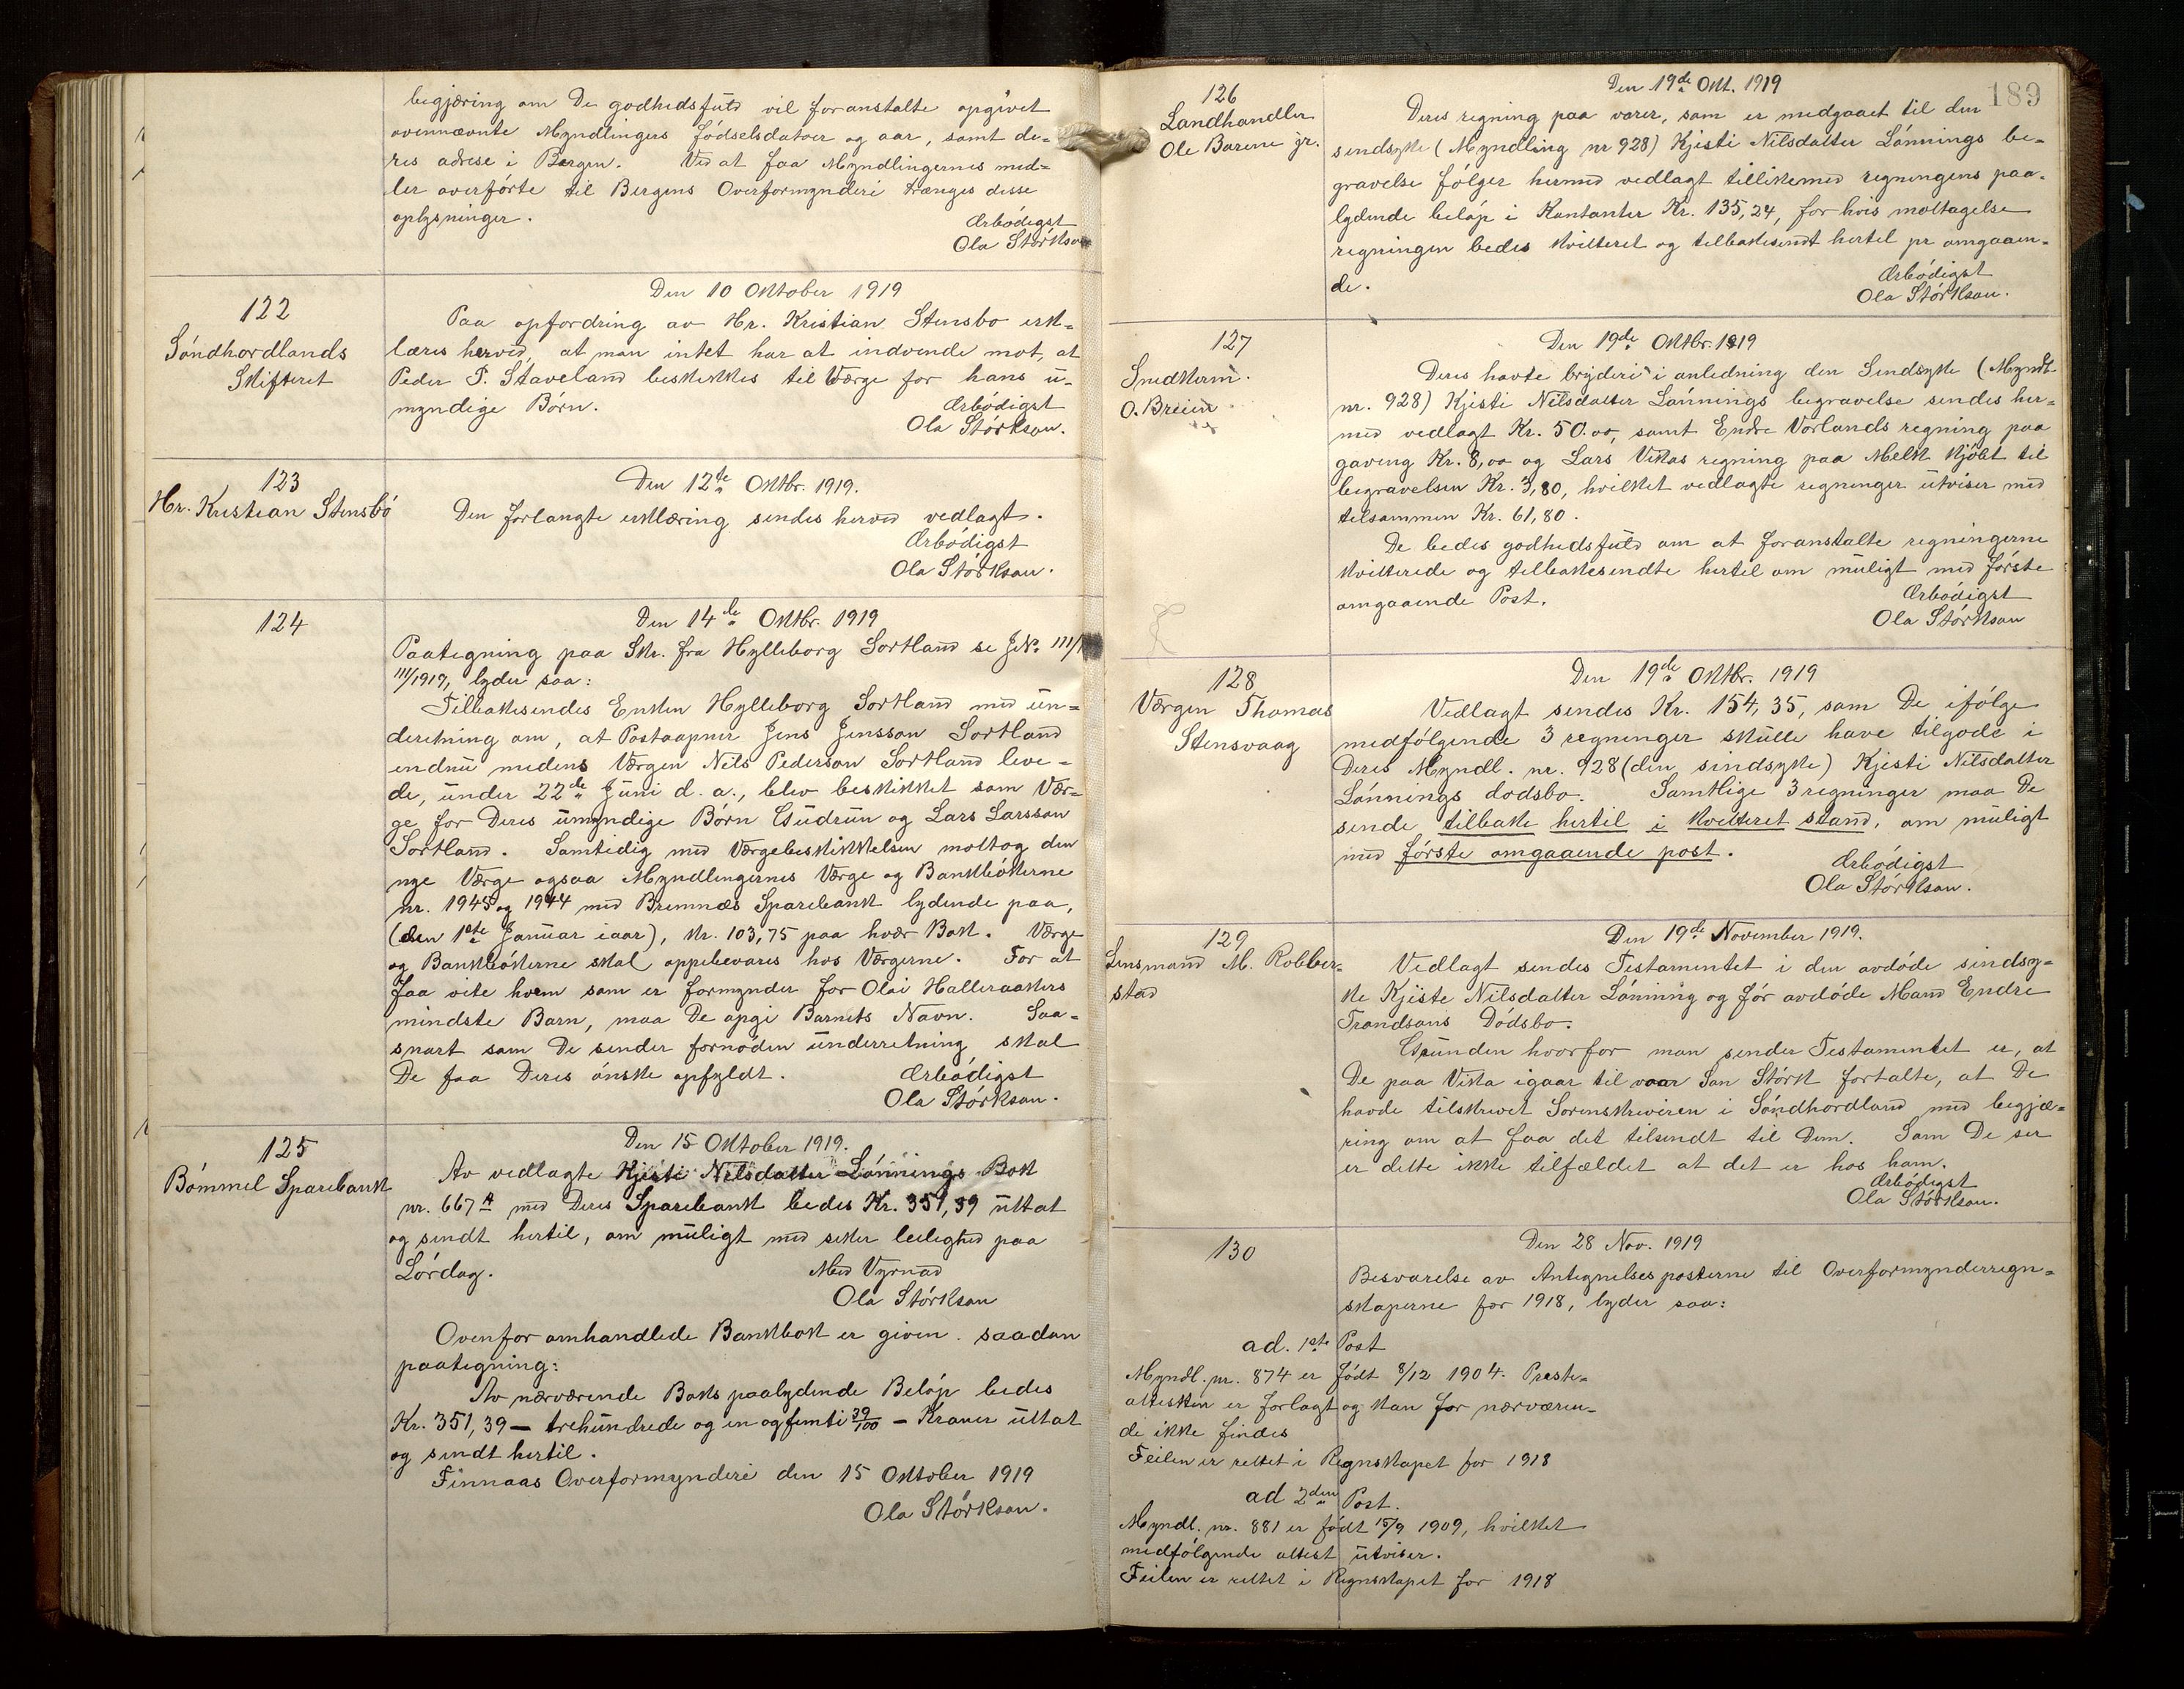 begjæring om De godhedsfuld vil foranstalte opgivet
ovennævnte Myndlingers fødselsdatoer og aar, samt de=
res adrese i Bergen. Ved at faa Myndlingernes mid=
ler overførte til Bergens Overformynderi trænges disse
oplysninger.
Ærbødigst
Ola Størkson
122
Søndhordlands
Skifteret
Den 10 Oktober 1919
Paa opfordring av Hr. Kristian Stensbo erk=
læres herved, at man intet har at indvende mot, at
Peder T. Staveland beskikkes til Værge for hans u=
myndige Børn.
Ærbødigst
Ola Størkson.
123
Hr. Kristian Stensbø
Den 12te Oktbr. 1919.
Den forlangte erklæring sendes herved vedlagt.
Ærbødigst
Ola Størkson.
124
Den 14de Oktbr. 1919
Paategning paa Skr. fra Hylleborg Sortland se J.No 111/
111/1919, lyder saa:
Tilbakesendes Enken Hylleborg Sortland med un=
derretning om, at Postaapner Jens Jensson Sortland
endnu medens Værgen Nils Pederson Sortland leve=
de, under 22de Juni d. a., blev beskikket som Vær=
ge for Deres umyndige Børn Gudrun og Lars Larsson
Sortland. Samtidig med Værgebeskikkelsen mottog den
nye Værge ogsaa Myndlingernes Værge og Bankbøkerne
nr. 1945 og 1944 med Bremnæs Sparebank lydende paa,
(den 1ste Januar iaar), kr. 103,75 paa hver Bok. Værge
og Bankbøkerne skal oppebevares hos Værgerne. For at
faa vite hvem som er formynder for Olai Halleraakers
mindste Barn, maa De opgi Barnets Navn. Saa=
snart som De sender fornøden underretning skal
De faa Deres ønske opfyldt.
Ærbødigst
Ola Størkson.
125
Bømmel Sparebank
Den 15 Oktober 1919.
Av vedlagte Kjisti Nilsdatter Lønnings Bok
nr. 667 A med Deres Sparebank bedes Kr. 351,39 uttat
og sendt hertil, om muligt med sikker leilighed paa
Lørdag.
Med Vyrnad
Ola Størkson
Ovenfor omhandlede Bankbok er given saadan
paategning:
Av nærværende Boks paalydende Beløp bedes
Kr. 351,39 — trehundrede og en og femti 39/100 — Kroner uttat
og sendt hertil.
Finnaas Overformynderi den 15 Oktober 1919
Ola Størkson.
189
126
Landhandler
Ole Barene jr.
Den 19de Okt. 1919
Deres regning paa varer, som er medgaaet til den
sindsyke (Myndling nr 928) Kjisti Nilsdatter Lønnings be=
gravelse følger hermed vedlagt tillikemed regningens paa=
lydende beløp i Kontanter Kr. 135,24, for hvis mottagelse
regningen bedes kvitteret og tilbakesendt hertil pr omgaaen=
de.
Ærbødigst
Ola Størkson.
127
Snedkerm.
O. Breivi
Den 19de Oktbr. 1919
Deres havte bryderi i anledning den Sindsyke (Myndl.
nr. 928) Kjisti Nilsdatter Lønnings begravelse sendes her=
med vedlagt Kr. 50.00, samt Endre Vorlands regning paa
gaving Kr. 8,00 og Lars Vikas regning paa Melk kjøbt til
begravelsen Kr. 3,80, hvilket vedlagte regninger utviser med
tilsammen Kr. 61,80.
De bedes godhedsfuld om at foranstalte regningerne
kvitterede og tilbakesendte hertil om muligt med første
omgaaende Post.
Ærbødigst
Ola Størkson
128
Værgen Thomas
Stensvaag
Den 19de Oktbr. 1919
Vedlagt sendes Kr. 154,35, som De ifølge
medfølgende 3 regninger skulle have tilgode i
Deres Myndl. nr. 928 (den sindsyke) Kjisti Nilsdatter
Lønnings dødsbo. Samtlige 3 regninger maa De
sende tilbake hertil i kvitteret stand, om muligt
med første omgaaende post.
Ærbødigst
Ola Størkson.
129
Lensmand M. Robber=
stad
Den 19de November 1919.
Vedlagt sendes Testamentet i den avdøde sindsy=
ke Kjiste Nilsdatter Lønning og før avdøde Mand Endre
Trondsons Dødsbo.
Grunden hvorfor man sender Testamentet er, at
De paa Vika igaar til vaar Søn Størk fortalte, at De
havde tilskrevet Sorenskriveren i Søndhordland med begjæ=
ring om at faa det tilsendt til Dem. Som De ser
er dette ikke tilfældet at det er hos ham.
Ærbødigst
Ola Størkson.
130
Den 28 Nov. 1919
Besvarelse av Antegnelsesposterne til Overformynderregn=
skaperne for 1918, lyder saa:
ad. 1ste Post
Myndl. nr. 874 er født 8/12 1904. Preste=
attesten er forlagt og kan for nærværen=
de ikke findes
Feilen er rettet i Regnskapet for 1918
ad 2den Post.
Myndl. nr. 881 er født 15/9 1909, hvilket
medfølgende attest utviser.
Feilen er rettet i Regnskapet for 1918